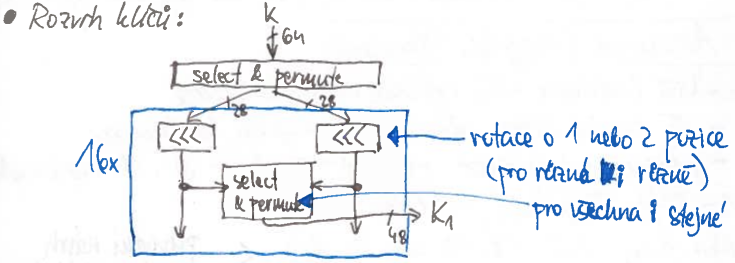 • Rozvrh klíčů:
K
64
select & permute
28 28
<<< <<<
16x
rotace o 1 nebo 2 pozice
(pro různá i různě)
select
& permute
pro všechna i stejné
K1
48